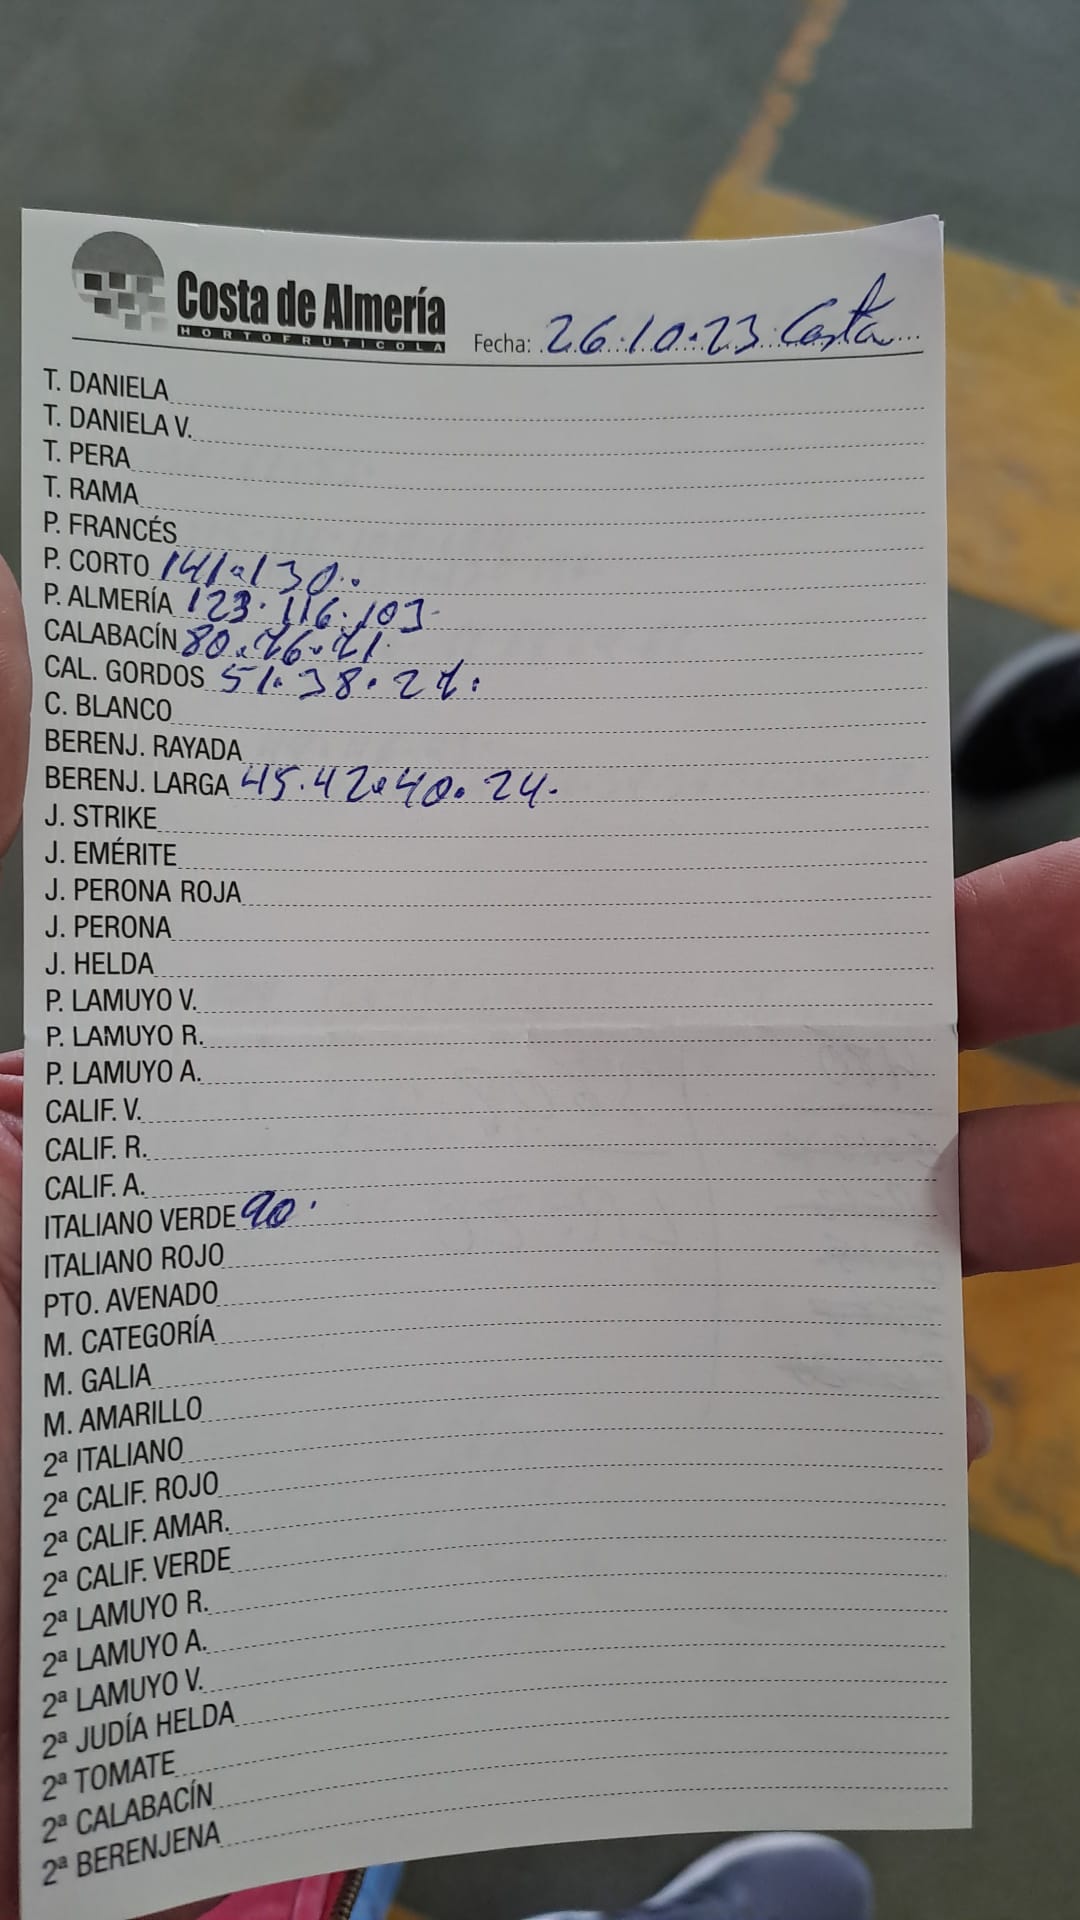 Costa de Almería
HORTOFRUTICOLA
Fecha: 26.10.23 Costa
T. DANIELA
T. DANIELA V.
T. PERA
T. RAMA
P. FRANCÉS
P. CORTO 141.130.
P. ALMERÍA 123.116.103.
CALABACÍN 80.76.71.
CAL. GORDOS 51.38.27.
C. BLANCO
BERENJ. RAYADA
BERENJ. LARGA 45.42.40.24.
J. STRIKE
J. EMÉRITE
J. PERONA ROJA
J. PERONA
J. HELDA
P. LAMUYO V.
P. LAMUYO R.
P. LAMUYO A.
CALIF. V.
CALIF. R.
CALIF. A.
ITALIANO VERDE 90.
ITALIANO ROJO
PTO. AVENADO
M. CATEGORÍA
M. GALIA
M. AMARILLO
2ª ITALIANO
2ª CALIF. ROJO
2ª CALIF. AMAR.
2ª CALIF. VERDE
2ª LAMUYO R.
2ª LAMUYO A.
2ª LAMUYO V.
2ª JUDÍA HELDA
2ª TOMATE
2ª CALABACÍN
2ª BERENJENA